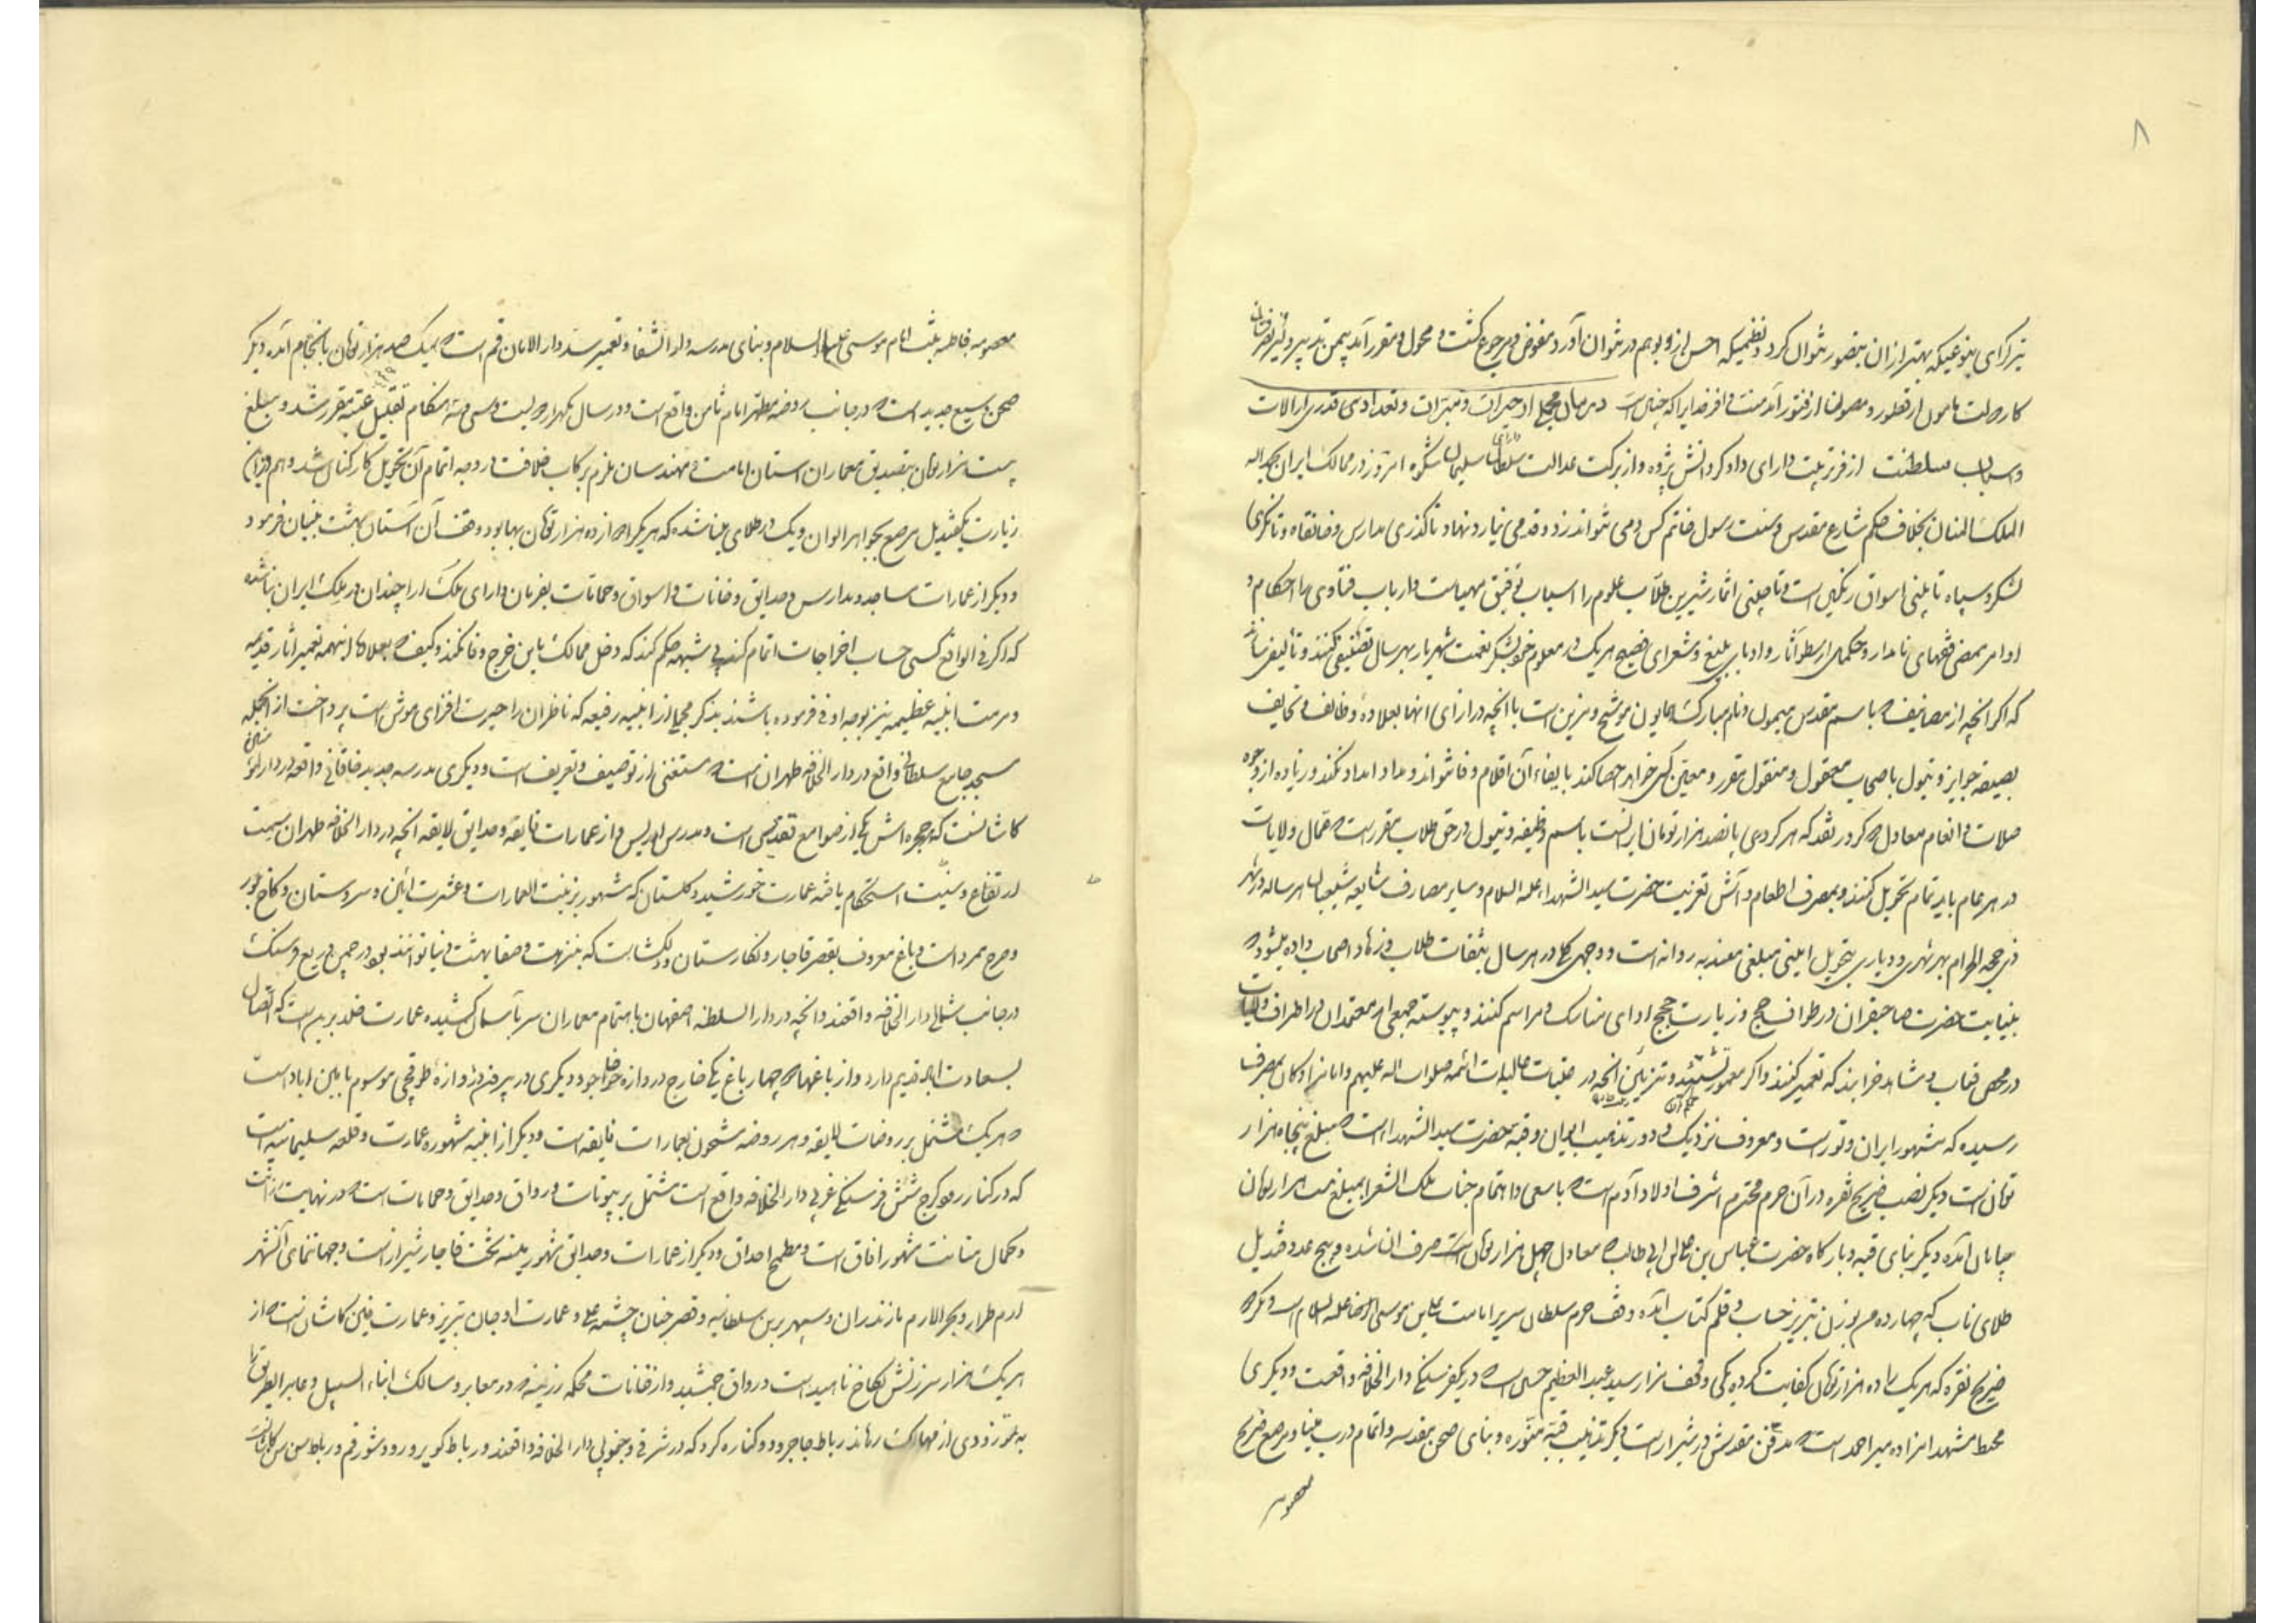 ۸
نیز کرای بنوعیکه بهتر از ان بتصور نتوان کرد و نظمیکه احسن ازو بوهم در نتوان آورد مفوض و مرجوع گشت و محول و مقرر آمد
کار دولت مامون از قصور و مصون از فتور آمد منت خدایرا که چنان است در بیان مجملی از خیرات و مبرات و تعدادی قدری از الات
و اسباب سلطنت از فر تربیت دارای دادگر دانش پژوه و از برکت عدالت سلطان سلیمان شکوه امروز در ممالک ایران بحمد اله
الملک المنان بخلاف حکم شارع مقدس و سنت رسول خاتم کس دمی نتواند زد و قدمی نیارد نهاد تا گذری مدارس و خانقاه و تا نگری
لشکر و سپاه تا بینی اسواق رنگین است و تا چینی اثمار شیرین طلاب علوم را اسباب توفیق مهیاست و ارباب فتاوی را احکام و
اوامر ممضی فقهای نامدار و حکمای ارسطو آثار و ادبای بلیغ و شعرای فصیح هر یک در معلوم خود بشکر نعمت شهریار هر سال تصنیفی کنند و تألیفی
که اگر آنچه از مصانیف که باسم مقدس میمون و نام مبارک همایون موشح و مزین است با آنچه در ازای انها بعلاوه وظایف و تحایف
بصیغه جوایز و تیول باصحاب معقول و منقول مقرر و معین کسی خواهد احصا کند بایفاء آن اقلام وفا نتواند و مداد امداد نکند و زیاده از وجوه
صلات و انعام معادل کرور نقد که هر کروری پانصد هزار تومان ایرانست باسم وظیفه و تیول در حق طلاب مقرر است که عمال ولایات
در هر عام باید تمام تحویل کنند و بمصرف اطعام و آش تعزیت حضرت سید الشهداء علیه السلام و سایر مصارف
ذی حجه الحرام بهر شهری و دیاری بتحویل امینی مبلغی معتد به روانه است و وجهی که در هر سال بثقات طلاب و زهاد اصحاب داده میشود که
بنیابت حضرت صاحبقران در طواف حج و زیارت حجج ادای مناسک و مراسم کنند و پیوسته جمعی از معتمدان در اطراف ولایات
در فحص قباب و مشاهد خرابند که تعمیر کنند و اگر معمور تشیید و تزیین آنچه در عتبات عالیات ائمه صلوات اله علیهم و امانزادگان بمصرف
رسیده که مشهور ایران و تور است و معروف نزدیک و دور تذهیب ایوان و قبه حضرت سید الشهداء است که مبلغ پنجاه هزار
تومان است دیگر نصب ضریح نقره در آن حرم محترم اشرف اولاد آدم است که باسعی و اهتمام جناب ملک الشعرا بمبلغ بیست هزار تومان
بپایان آمده دیگر بنای قبه و بارگاه حضرت عباس بن علی ابی طالب که معادل چهل هزار تومان است صرف ان شده و پنج عدد قندیل
طلای ناب که چهارده من بوزن تبریز حساب و قلم کتاب آمده وقف حرم سلطان سریر امامت علی بن موسی الرضا علیه السلام است دیگر
ضریح نقره که هر یک را ده هزار تومان کفایت کرده یکی وقف مزار سید عبد العظیم حسنی است که در یکفرسنگی دار الخلافه واقعست و دیگری
محیط مشهد امزاده میر احمد است که مدفن مقدسش در شیراز است دیگر تذهیب قبه منوره و بنای صحن مقدسه و اتمام درب مینا و مرصع ضریح
معصومه
معصومه فاطمه بنت امام موسی علیها السلام و بنای مدرسه و دار الشفا و تعمیر سد دار الامان قم است که بیک صد هزار تومان بانجام آمده دیگر
صحن وسیع جدید است که در جانب روضه مطهر امام ثامن واقع است و در سال یکهزار و دویست و سی و سه هنگام تقبیل عتبه مقرر شد و مبلغ
بیست هزار تومان بتصدیق معماران استان امامت و مهندسان ملزم رکاب خلافت در وجه اتمام آن تحویل کارکنان شد و هم در ان
زیارت یکقندیل مرصع بجواهر الوان و یک در طلای مینا شده که هر یک را ده هزار تومان بها بود وقف آن آستان بهشت بنیان فرمود
و دیگر از عمارات مساجد و مدارس و حدایق و خانات و اسواق و حمامات بفرمان دارای ملک ارا چندان در ملک ایران بنا شده
که اگر فی الواقع کسی حساب اخراجات اتمام کند بی شبهه حکم کند که دخل ممالک باین خرج وفا نکند و کیف که بعلاوه از انهمه تعمیر اثار قدیمه
و مرمت ابنیه عظیمه نیز بوجه اوفی فرموده باشند بذکر مجملی از ابنیه رفیعه که ناظران را حیرت افزای هوش است پرداخت از انجمله
مسجد جامع سلطانی واقع در دار الخلافه طهران است که مستغنی از توصیف و تعریف است و دیگری مدرسه جدید خاقانی واقعه در دار المؤمنین
کاشانست که هر حجره اش یکی از صوامع تقدیس است و مدرس ادریس و از عمارات فایقه و حدایق لایقه انچه در دار الخلافه طهران سمت
ارتفاع و نیت استحکام یافته عمارت خورشید و گلستان که مشهور بزینت العمارات و عشرت ائین و سروستان و کاخ بلور
و صرح ممرد است و باغ معروف بقصر قاجار و نگارستان و دلگشاست که بنزهت و صفا بهشت دنیا توانند بود در چمن وسیع و سنگ
در جانب شمالی دار الخلافه واقعند و انچه در دار السلطنه اصفهان باهتمام معماران سر بآسمان کشیده عمارت خلد برین است که اتصال
بسعادت اباد قدیم دارد و از باغها که چهار باغ یکی خارج دروازه خواجو و دیگری در بیرون دروازه طوقچی موسوم بامین اباد است
که هر یک مشتمل بر روضات لایقه و هر روضه مشحون بعمارات فایقه است و دیگر از ابنیه مشهوره عمارت و قلعه سلیمانیه است
که در کنار رود کرج شش فرسنگی غربی دار الخلافه واقع است مشتمل بر بیوتات و رواق و حدایق و حمامات است که در نهایت
و کمال متانت مشهور افاق است و مطمح احداق و دیگر از عمارات و حدایق مشهور بتخت قاجار شیراز است و جهانمای آنشهر
ارم طراز و بحر الارم مازندران و سپهر برین سلطانیه و قصر جنان چشمه علی و عمارت اوجان تبریز و عمارت فین کاشان است که از
هر یک هزار سرزنش بکاخ ناهید است و رواق جمشید و از خانات محکمه رزینه که در معابر و مسالک ابناء السبیل و عابر الطریق را
به تموز و دی از مهالک رهاند رباط جاجرود و کناره کرد که در شرقی و جنوبی دار الخلافه واقعند و رباط کویر و رود شور قم و رباط سن سن کاشانست